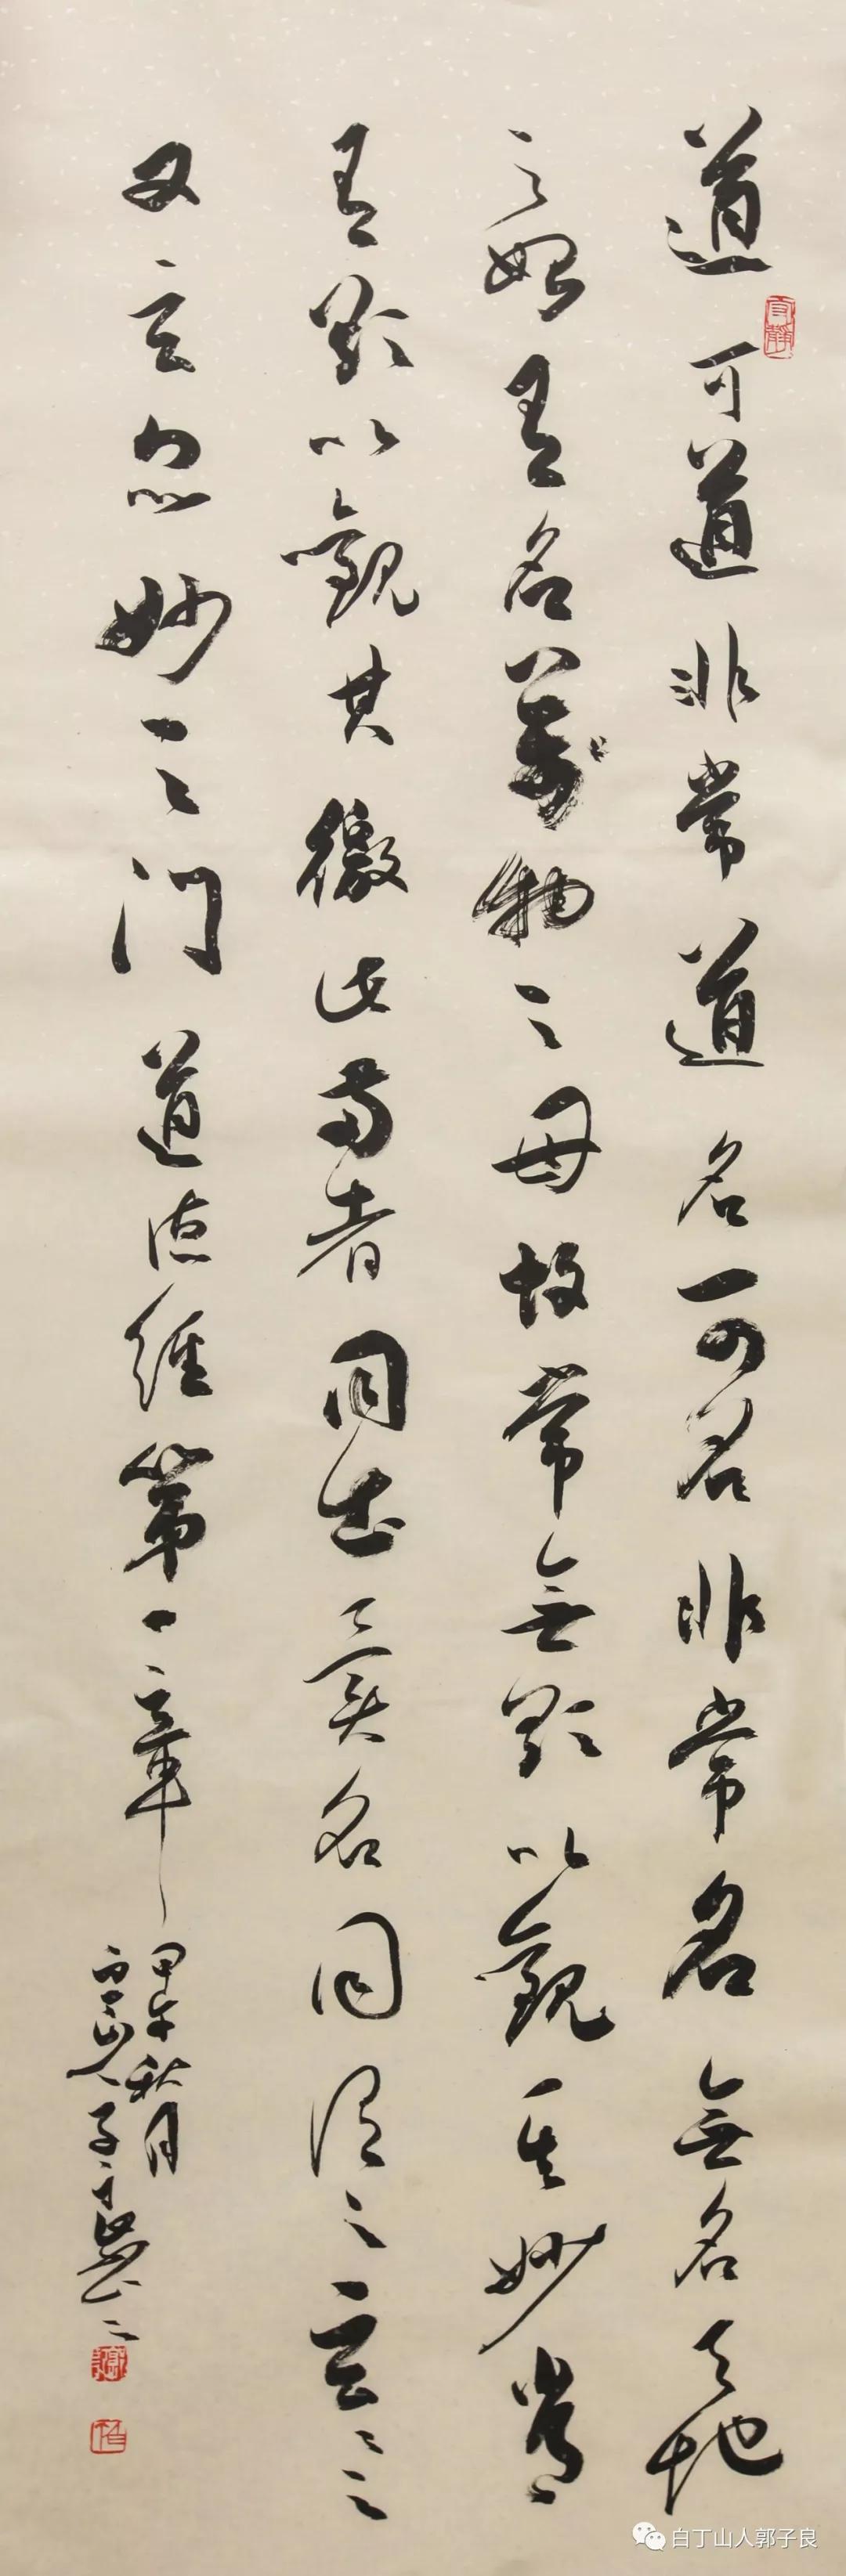 道可道非常道名可名非常名無名天地
之始有名萬物之母故常無欲以觀其妙常
有欲以觀其徼此兩者同出異名同謂之玄々之
又玄眾妙之门道德經第一章
甲午秋月
白丁山人子良書
白丁山人郭子良